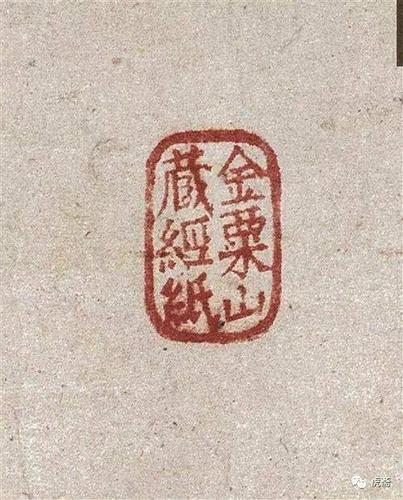 金粟山
藏經紙
虎斋